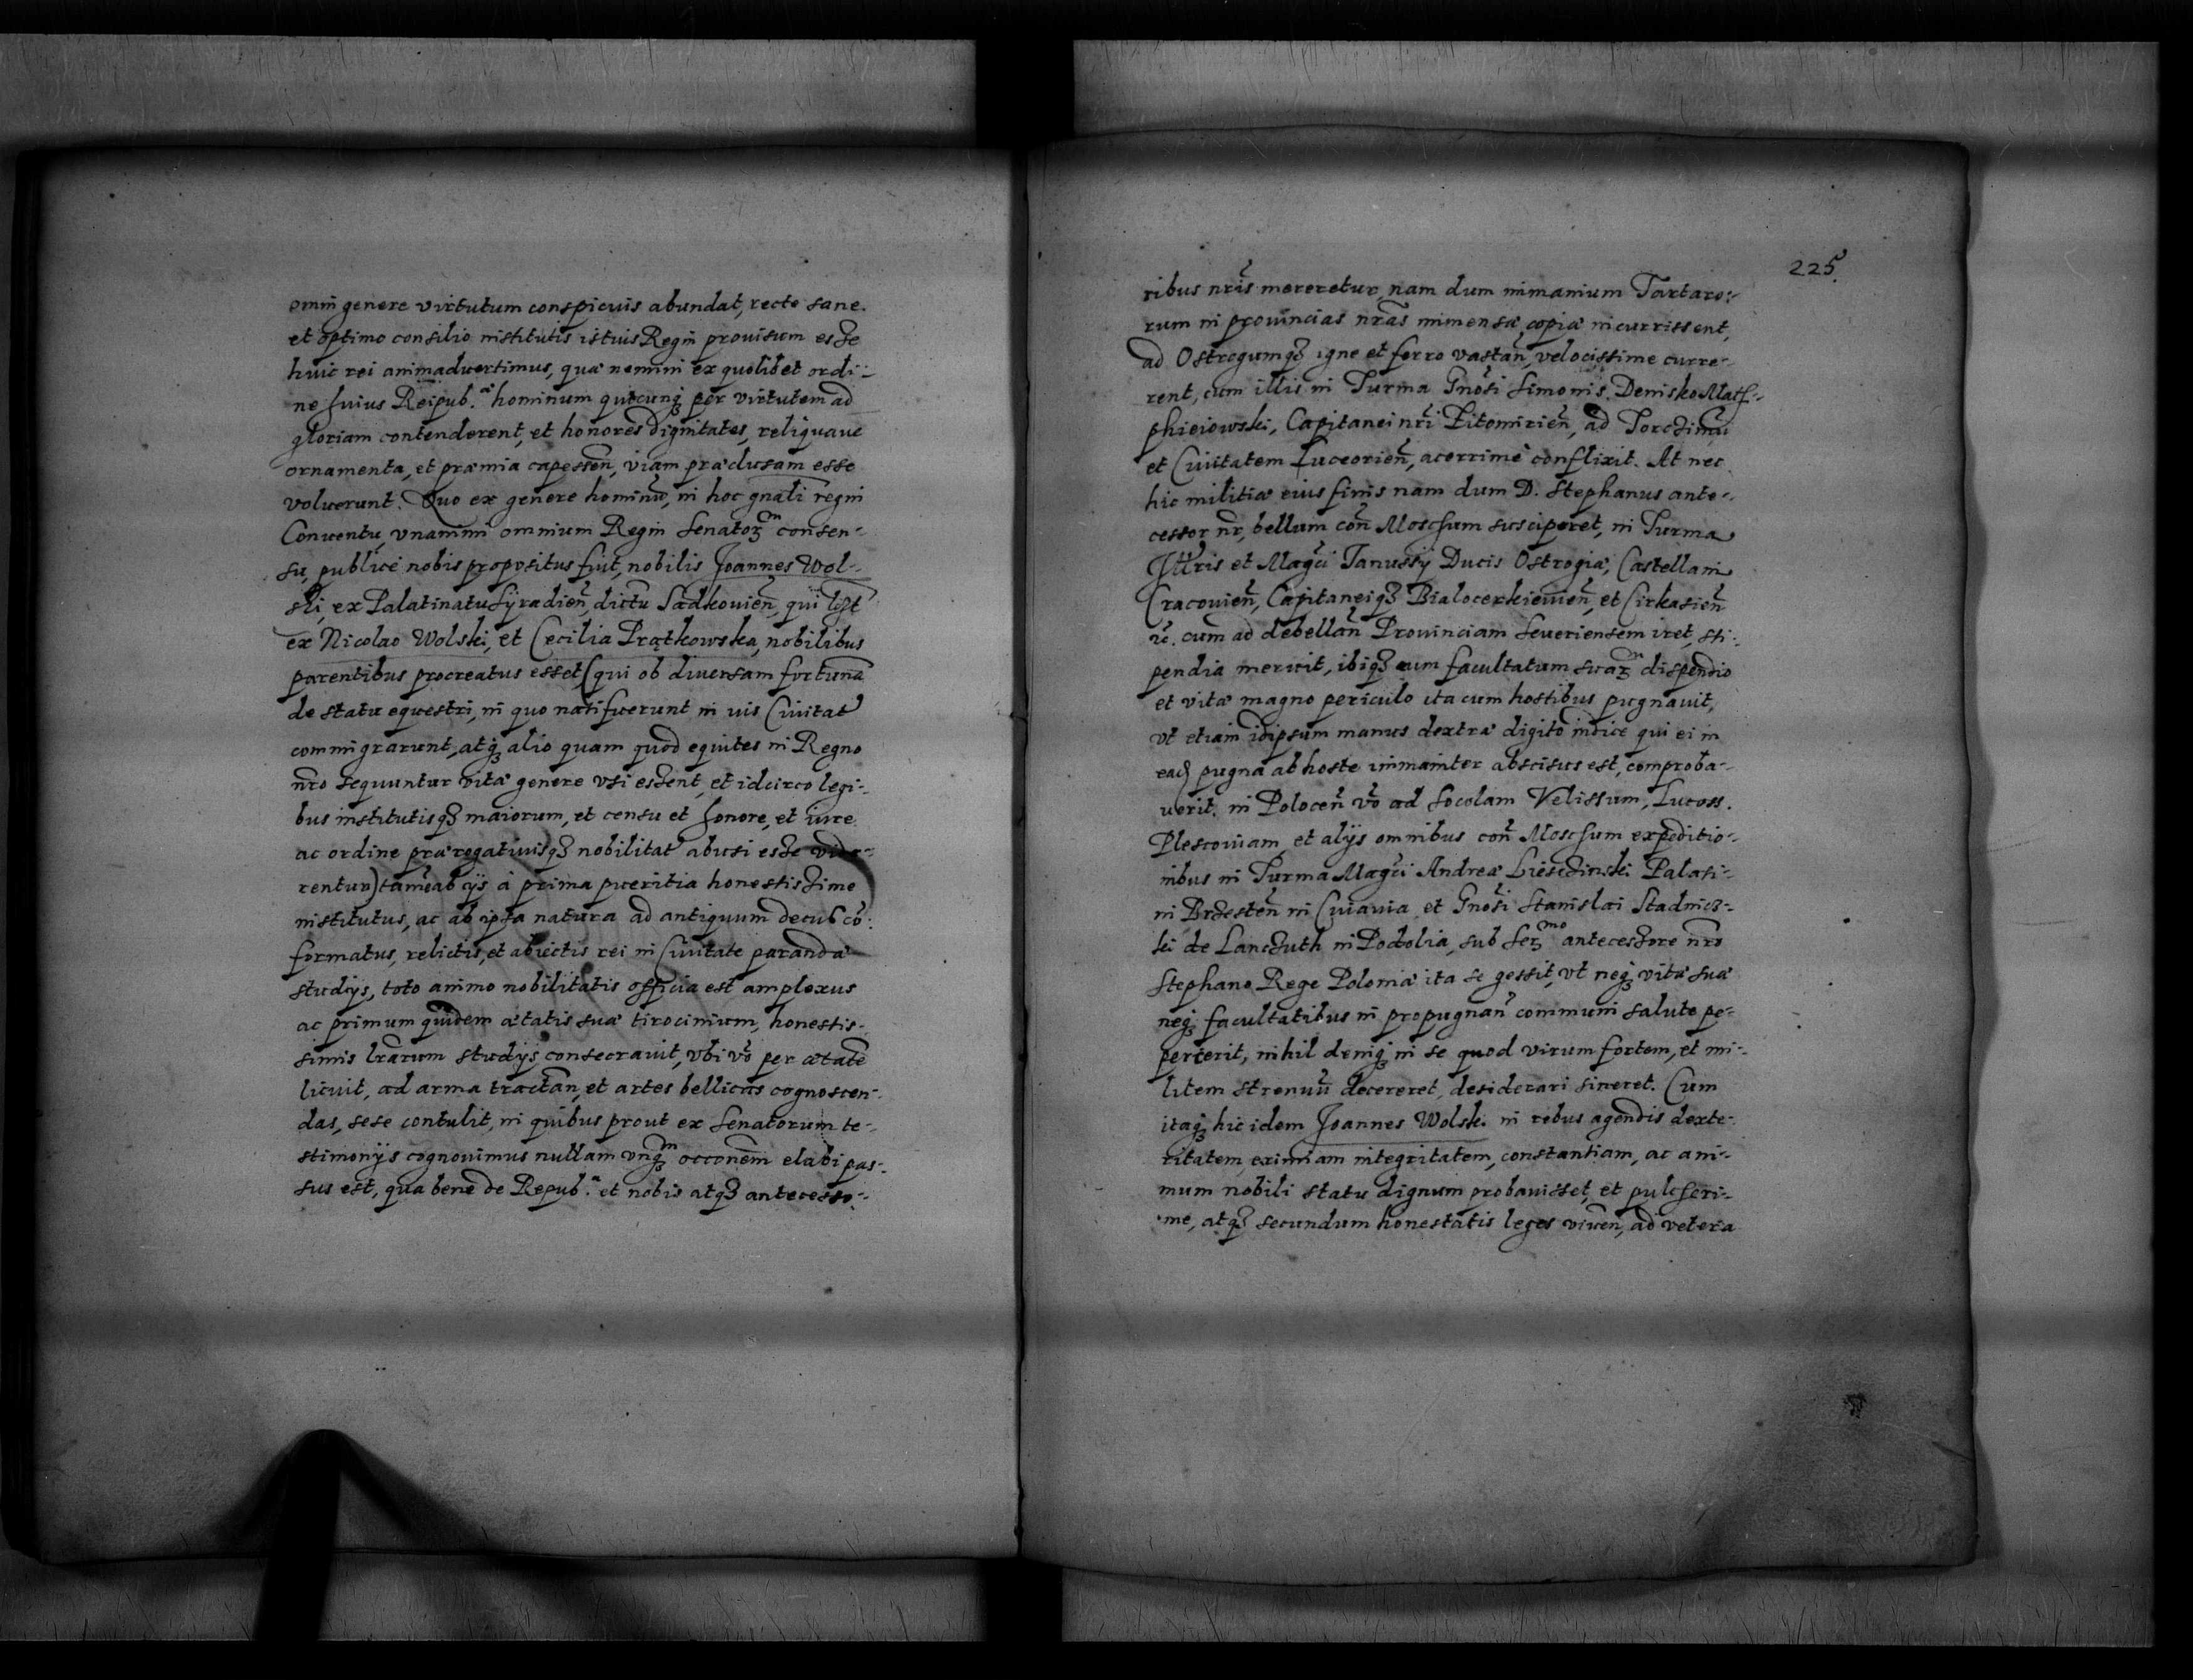 omni genere virtutum conspicuis abundat, recte sane.
et optimo consilio institutis istius Regni prouisum esse
huic rei animaduertimus, qua nemini ex quolibet ordi-
ne huius Reipub.ae hominum quicunq; per virtutem ad
gloriam contenderent, et honores dignitates, reliquaue
ornamenta, et præmia capessen̄, viam præclusam esse
voluerunt. Quo ex genere hominū, in hoc gnali regni
Conuentu, vnanimi omnium Regni Senatoꝝ consen-
su, publice nobis propositus fuit, nobilis Joannes Wol-
ski, ex Palatinatu Syradien̄, dictū Sadkouien̄, qui
ex Nicolao Wolski, et Cecilia Prątkowska, nobilibus
parentibus procreatus esset (qui ob diuersam fortunā
de statu equestri, in quo nati fuerunt in uis Ciuitat
commigrarunt, atq; alio quam quod equites in Regno
nr̄o sequuntur vitæ genere vsi essent, et idcirco legi-
bus institutisq; maiorum, et censu et honore, et iure
ac ordine prærogatiuisq; nobilitat abusi esse vide-
rentur) tamē ab ijs à prima pueritia honestissime
institutus, ac ab ipsa natura ad antiquum decus cō-
formatus, relictis, et abiectis rei in Ciuitate parandæ
studijs, toto animo nobilitatis officia est amplexus
ac primum quidem ætatis suæ tirocinium, honestis-
simis lr̄arum studijs consecrauit, vbi vō per ætatē
licuit, ad arma tractan̄, et artes bellicas cognoscen-
das, sese contulit, in quibus prout ex Senatorum te-
stimonijs cognouimus nullam vnq; occōnem elabi pas-
sus est, qua bene de Repub.a et nobis atq; antecesso-
225
ribus nr̄is mereretur, nam dum immanium Tartaro-
rum in prouincias nr̄as immensæ copiæ incurrissent,
ad Ostrogumq; igne et ferro vastan̄, velocissime curre-
rent, cum illis in Turma Gnosi Simonis Denisko Matf-
phieiowski, Capitanei nr̄i Zitomirien̄, ad
et Ciuitatem Luceorien̄, acerrime conflixit. At nec
hic militiæ eius finis nam dum D. Stephanus ante-
cessor nr̄, bellum con̄ Moschum susciperet, in Turma
Illr̄is et Magci Janussij Ducis Ostrogiæ, Castellani
Cracouien̄, Capitaneiq; Bialocerkieuien̄, et Cirkasien̄
cum ad debellan̄ Prouinciam Seueriensem iret, sti-
pendia meruit, ibiq; cum facultatum suaꝝ dispendio
et vitæ magno periculo ita cum hostibus pugnauit,
vt etiam idipsum manus dextræ digito indice qui ei in
ead pugna ab hoste immaniter abscisus est, comproba-
uerit, in Polocen̄ vō ad Socolam Velissum, Lucoss.
Plescouiam et alijs omnibus con̄ Moschum expeditio-
nibus in Turma Magci Andreæ Liesczinski Palati-
ni Brzesten̄ in Cuiauia et Gnosi Stanislai Stadnicz-
ki de Lanschuth in Podolia, sub Ser.mo antecessore nr̄o
Stephano Rege Poloniæ ita se gessit, vt neq; vitæ suæ
neq; facultatibus in propugnan̄ communi salute pe-
percerit, nihil deniq; in se quod virum fortem, et mi-
litem strenuū deceret, desiderari sineret. Cum
itaq; hic idem Joannes Wolski in rebus agendis dexte-
ritatem, eximiam integritatem, constantiam, ac ani-
mum nobili statu dignum probauisset, et pulcheri-
me, atq; secundum honestatis leges viuen̄, ad vetera